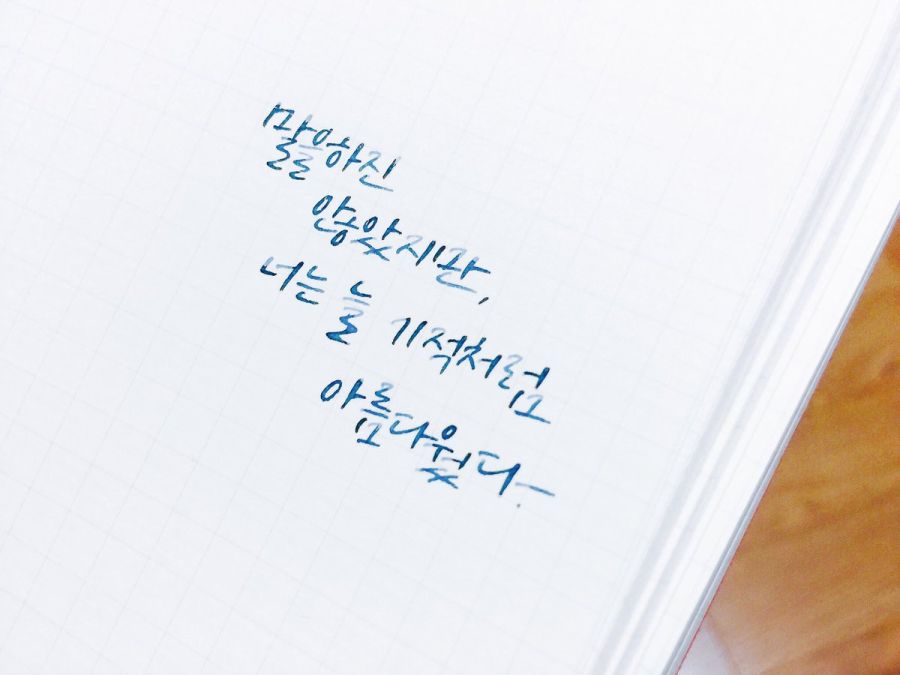 말을하진
않았지만,
너는 늘 기적처럼
아름다웠다.